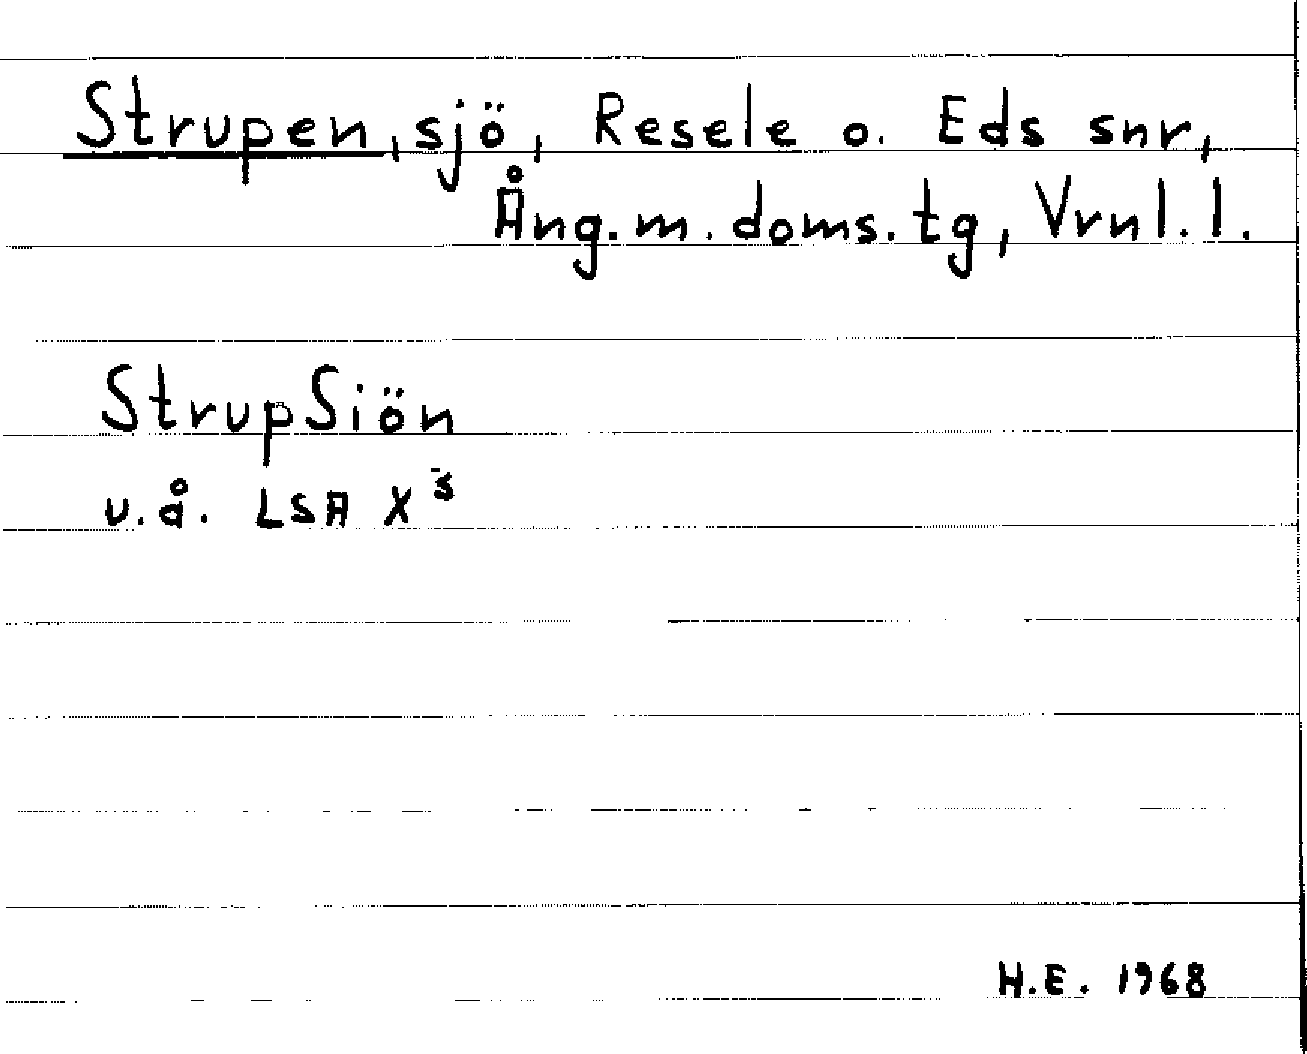 Strupen, sjö, Resele o. Eds snr,
Ång. m. doms. tg, Vrnl. l.
StrupSiön
u.å. LSA X³
H.E. 1968